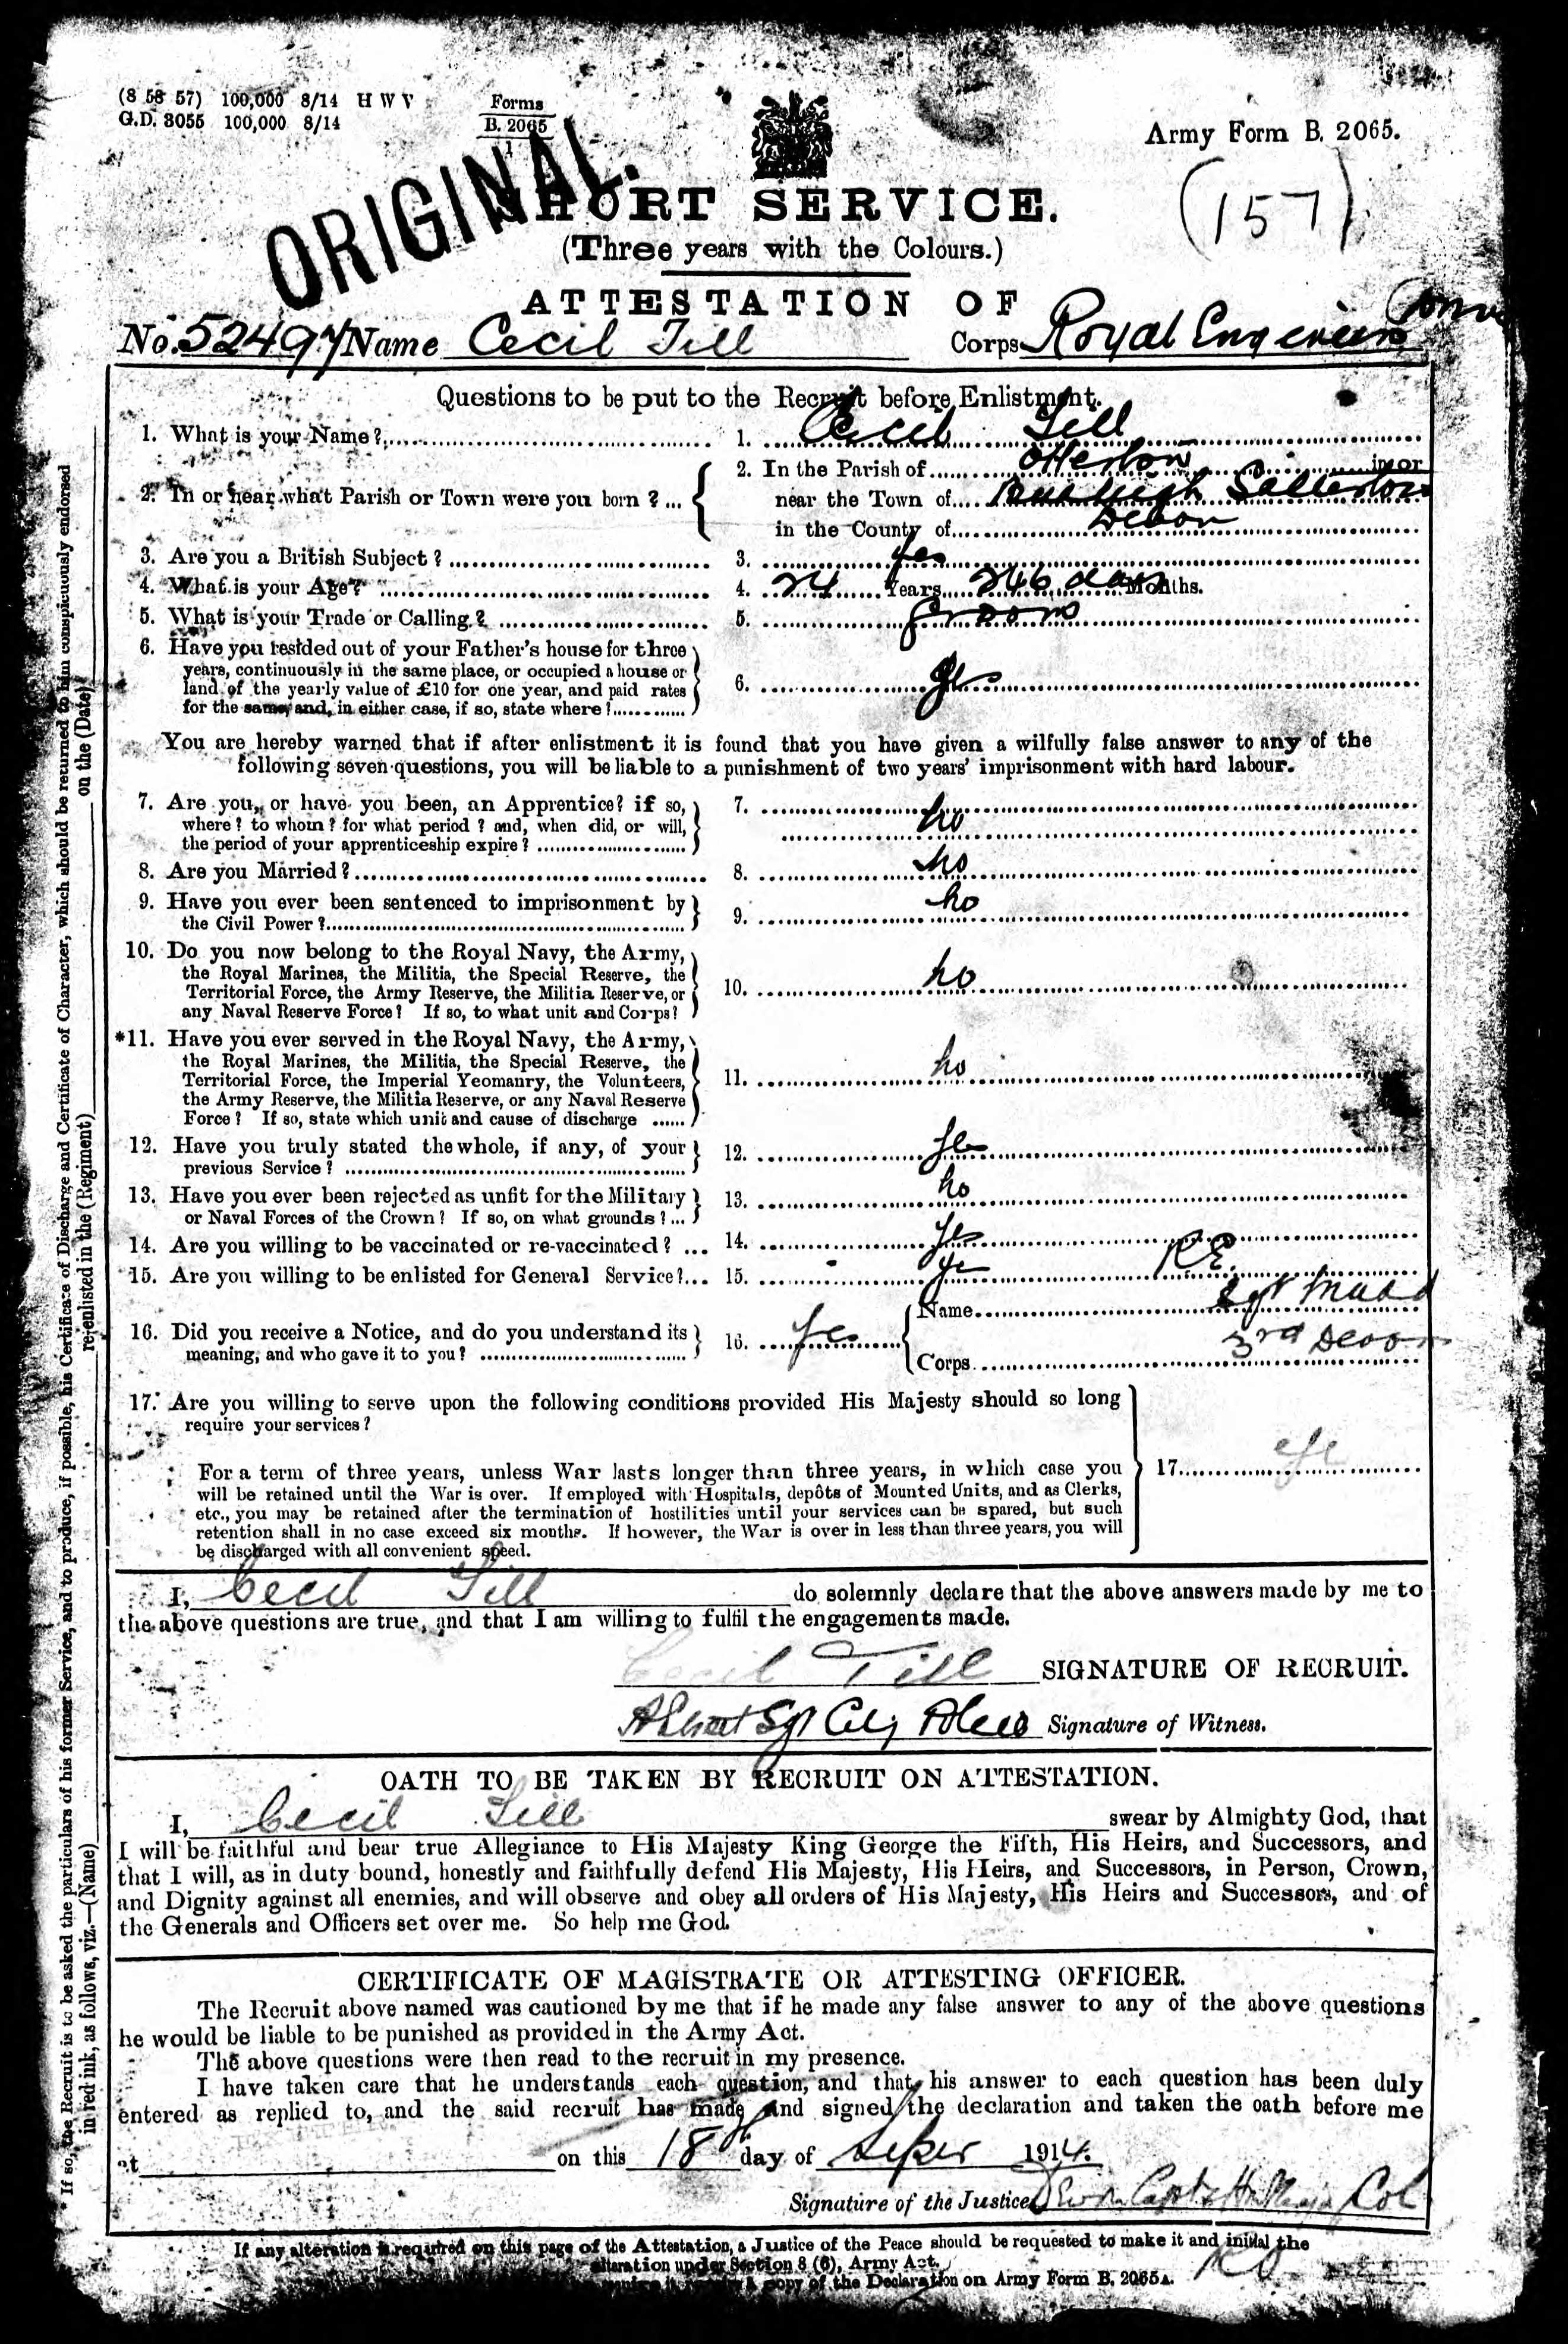 (8 58 57) 100,000 8/14 H W V
G.D. 3055 100,000 8/14
Forms
B. 2065
1
Army Form B. 2065.
ORIGINAL.
(157)
SHORT SERVICE.
(Three years with the Colours.)
ATTESTATION OF
No. 52497 Name Cecil Till Corps Royal Engineers
Questions to be put to the Recruit before Enlistment.
1. What is your Name? 1. Cecil Till
2. In or near what Parish or Town were you born? ... 2. In the Parish of Otterton in or
near the Town of Budleigh Salterton
in the County of Devon
3. Are you a British Subject? 3. Yes
4. What is your Age? 4. 24 Years 246 days Months.
5. What is your Trade or Calling? 5. Groom
6. Have you resided out of your Father's house for three
years, continuously in the same place, or occupied a house or
land of the yearly value of £10 for one year, and paid rates
for the same, and, in either case, if so, state where? 6. Yes
You are hereby warned that if after enlistment it is found that you have given a wilfully false answer to any of the
following seven questions, you will be liable to a punishment of two years' imprisonment with hard labour.
7. Are you, or have you been, an Apprentice? if so,
where? to whom? for what period? and, when did, or will,
the period of your apprenticeship expire? 7. No
8. Are you Married? 8. No
9. Have you ever been sentenced to imprisonment by
the Civil Power? 9. No
10. Do you now belong to the Royal Navy, the Army,
the Royal Marines, the Militia, the Special Reserve, the
Territorial Force, the Army Reserve, the Militia Reserve, or
any Naval Reserve Force? If so, to what unit and Corps? 10. No
*11. Have you ever served in the Royal Navy, the Army,
the Royal Marines, the Militia, the Special Reserve, the
Territorial Force, the Imperial Yeomanry, the Volunteers,
the Army Reserve, the Militia Reserve, or any Naval Reserve
Force? If so, state which unit and cause of discharge 11. No
12. Have you truly stated the whole, if any, of your
previous Service? 12. Yes
13. Have you ever been rejected as unfit for the Military
or Naval Forces of the Crown? If so, on what grounds?... 13. No
14. Are you willing to be vaccinated or re-vaccinated? ... 14. Yes
15. Are you willing to be enlisted for General Service?... 15. Yes R.E.
16. Did you receive a Notice, and do you understand its
meaning, and who gave it to you? 16. Yes Name Sgt
Corps 3rd Devon
17. Are you willing to serve upon the following conditions provided His Majesty should so long
require your services?
For a term of three years, unless War lasts longer than three years, in which case you
will be retained until the War is over. If employed with Hospitals, depôts of Mounted Units, and as Clerks,
etc., you may be retained after the termination of hostilities until your services can be spared, but such
retention shall in no case exceed six months. If however, the War is over in less than three years, you will
be discharged with all convenient speed.
17. Yes
I, Cecil Till do solemnly declare that the above answers made by me to
the above questions are true, and that I am willing to fulfil the engagements made.
Cecil Till SIGNATURE OF RECRUIT.
Sgt Signature of Witness.
OATH TO BE TAKEN BY RECRUIT ON ATTESTATION.
I, Cecil Till swear by Almighty God, that
I will be faithful and bear true Allegiance to His Majesty King George the Fifth, His Heirs, and Successors, and
that I will, as in duty bound, honestly and faithfully defend His Majesty, His Heirs, and Successors, in Person, Crown,
and Dignity against all enemies, and will observe and obey all orders of His Majesty, His Heirs and Successors, and of
the Generals and Officers set over me. So help me God.
CERTIFICATE OF MAGISTRATE OR ATTESTING OFFICER.
The Recruit above named was cautioned by me that if he made any false answer to any of the above questions
he would be liable to be punished as provided in the Army Act.
The above questions were then read to the recruit in my presence.
I have taken care that he understands each question, and that his answer to each question has been duly
entered as replied to, and the said recruit has made and signed the declaration and taken the oath before me
at on this 18th day of Sepr 1914.
Signature of the Justice Col
If any alteration is required on this page of the Attestation, a Justice of the Peace should be requested to make it and initial the
alteration under Section 8 (6), Army Act.
copy of the Declaration on Army Form B. 2065A.
* If so, the Recruit is to be asked the particulars of his former Service, and to produce, if possible, his Certificate of Discharge and Certificate of Character, which should be returned to him conspicuously endorsed
in red ink, as follows, viz.—(Name) re-enlisted in the (Regiment) on the (Date)